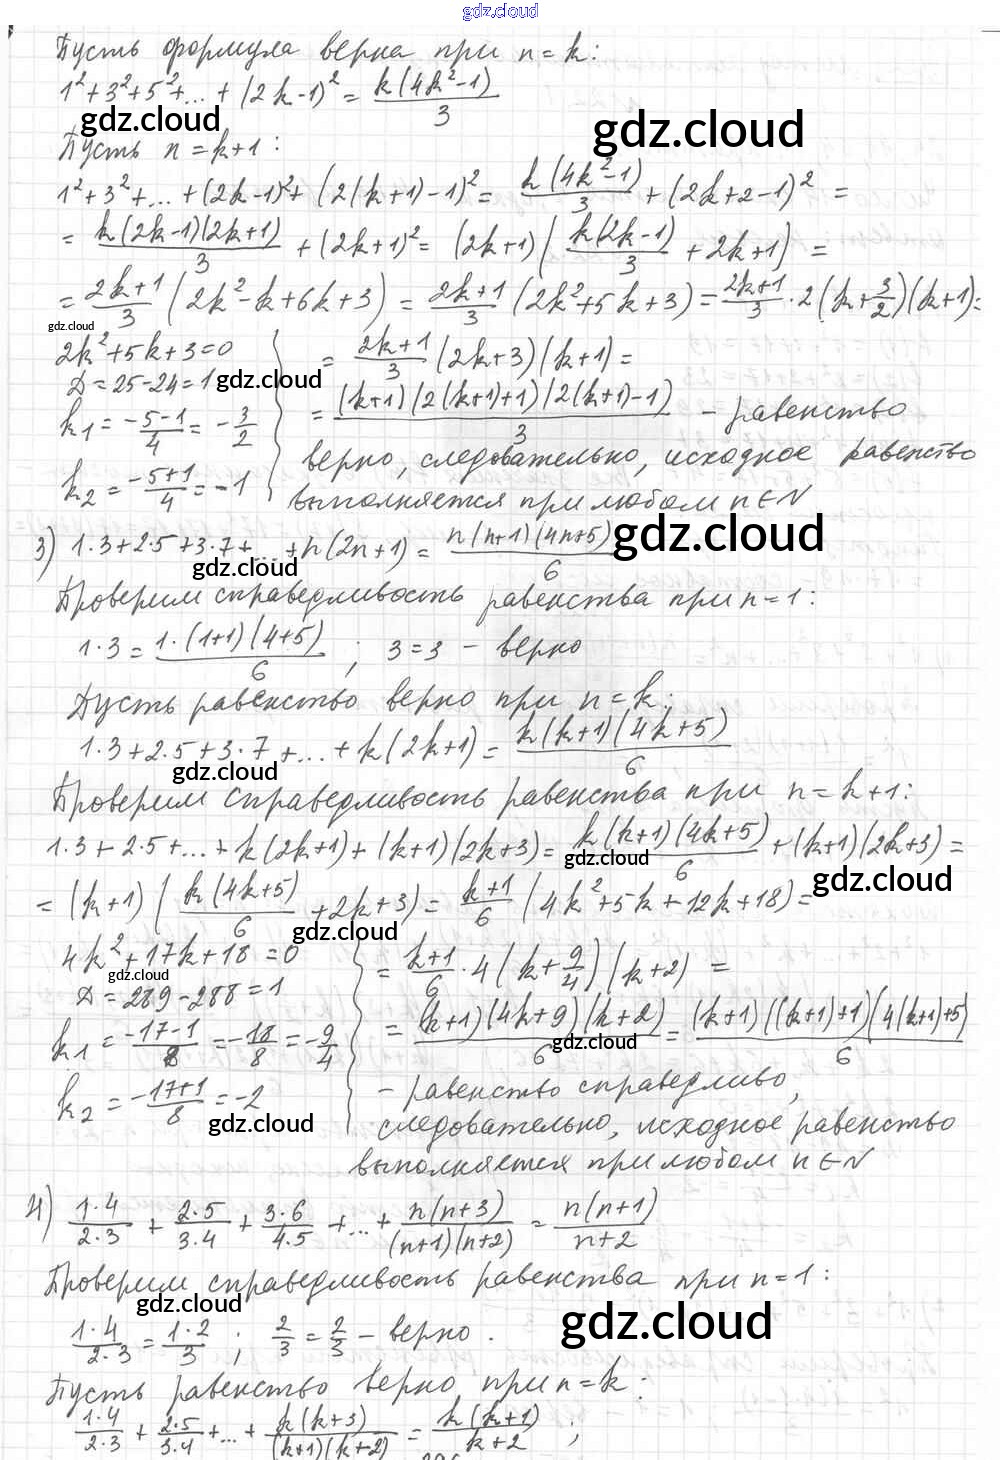 gdz.cloud
Пусть формула верна при n=k:
1²+3²+5²+...+(2k-1)²= k(4k²-1)/3
gdz.cloud
gdz.cloud
Пусть n=k+1:
1²+3²+...+(2k-1)²+(2(k+1)-1)²= k(4k²-1)/3 +(2k+2-1)² =
= k(2k-1)(2k+1)/3 +(2k+1)²= (2k+1)(k(2k-1)/3 +2k+1)=
= 2k+1/3 (2k²-k+6k+3)= 2k+1/3 (2k²+5k+3)= 2k+1/3 ·2(k+3/2)(k+1)=
gdz.cloud
2k²+5k+3=0
Д=25-24=1
gdz.cloud
k1= -5-1/4 = -3/2
k2= -5+1/4 =-1
= 2k+1/3 (2k+3)(k+1)=
= (k+1)(2(k+1)+1)(2(k+1)-1)/3 – равенство
верно, следовательно, исходное равенство
выполняется при любом n∈N
3) 1·3+2·5+3·7+...+n(2n+1)= n(n+1)(4n+5)/6
gdz.cloud
gdz.cloud
Проверим справедливость равенства при n=1:
1·3= 1·(1+1)(4+5)/6 ; 3=3 – верно
Пусть равенство верно при n=k:
1·3+2·5+3·7+...+k(2k+1)= k(k+1)(4k+5)/6
gdz.cloud
Проверим справедливость равенства при n=k+1:
1·3+2·5+...+k(2k+1)+(k+1)(2k+3)= k(k+1)(4k+5)/6 +(k+1)(2k+3)=
gdz.cloud
gdz.cloud
= (k+1)(k(4k+5)/6 +2k+3)= k+1/6 (4k²+5k+12k+18)=
gdz.cloud
4k²+17k+18=0
gdz.cloud
Д=289-288=1
k1= -17-1/8 =-18/8=-9/4
k2= -17+1/8 =-2
gdz.cloud
= k+1/6 ·4(k+9/4)(k+2) =
= (k+1)(4k+9)(k+2)/6 = (k+1)((k+1)+1)(4(k+1)+5)/6
gdz.cloud
– равенство справедливо,
следовательно, исходное равенство
выполняется при любом n∈N
4) 1·4/2·3 + 2·5/3·4 + 3·6/4·5 +...+ n(n+3)/(n+1)(n+2) = n(n+1)/n+2
Проверим справедливость равенства при n=1:
gdz.cloud
gdz.cloud
1·4/2·3 = 1·2/3 ; 2/3=2/3 – верно.
Пусть равенство верно при n=k:
1·4/2·3 + 2·5/3·4 +...+ k(k+3)/(k+1)(k+2) = k(k+1)/k+2 ;